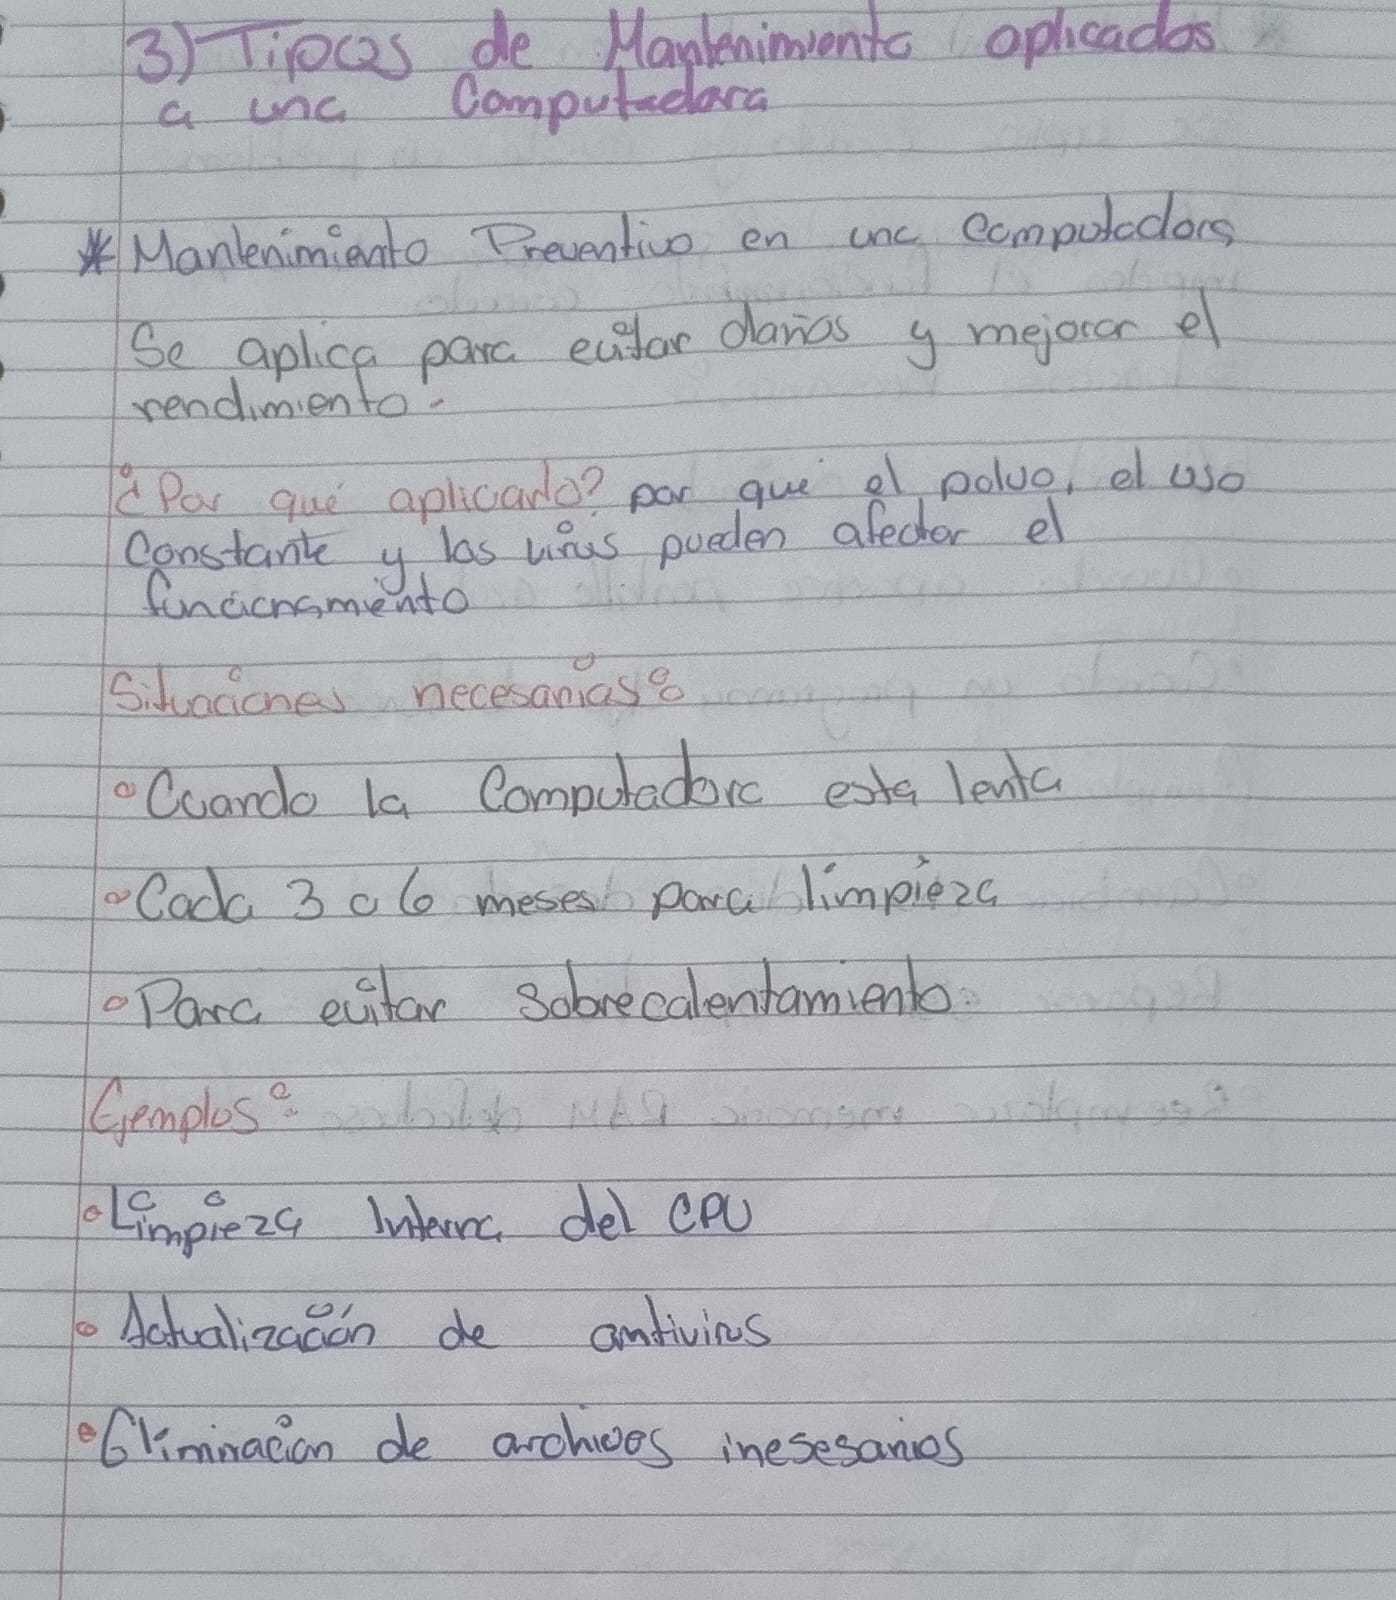 3) Tipos de Mantenimiento aplicados
a una Computadora
* Mantenimiento Preventivo en una Computadora
Se aplica para evitar daños y mejorar el
rendimiento.
¿Por qué aplicarlo? por que el polvo, el uso
Constante y los virus pueden afectar el
funcionamiento
Situaciones necesarias:
• Cuando la Computadora esta lenta
• Cada 3 a 6 meses para limpieza
• Para evitar Sobrecalentamiento.
Ejemplos:
• Limpieza Interna del CPU
• Actualización de antivirus
• Eliminación de archivos inesesarios